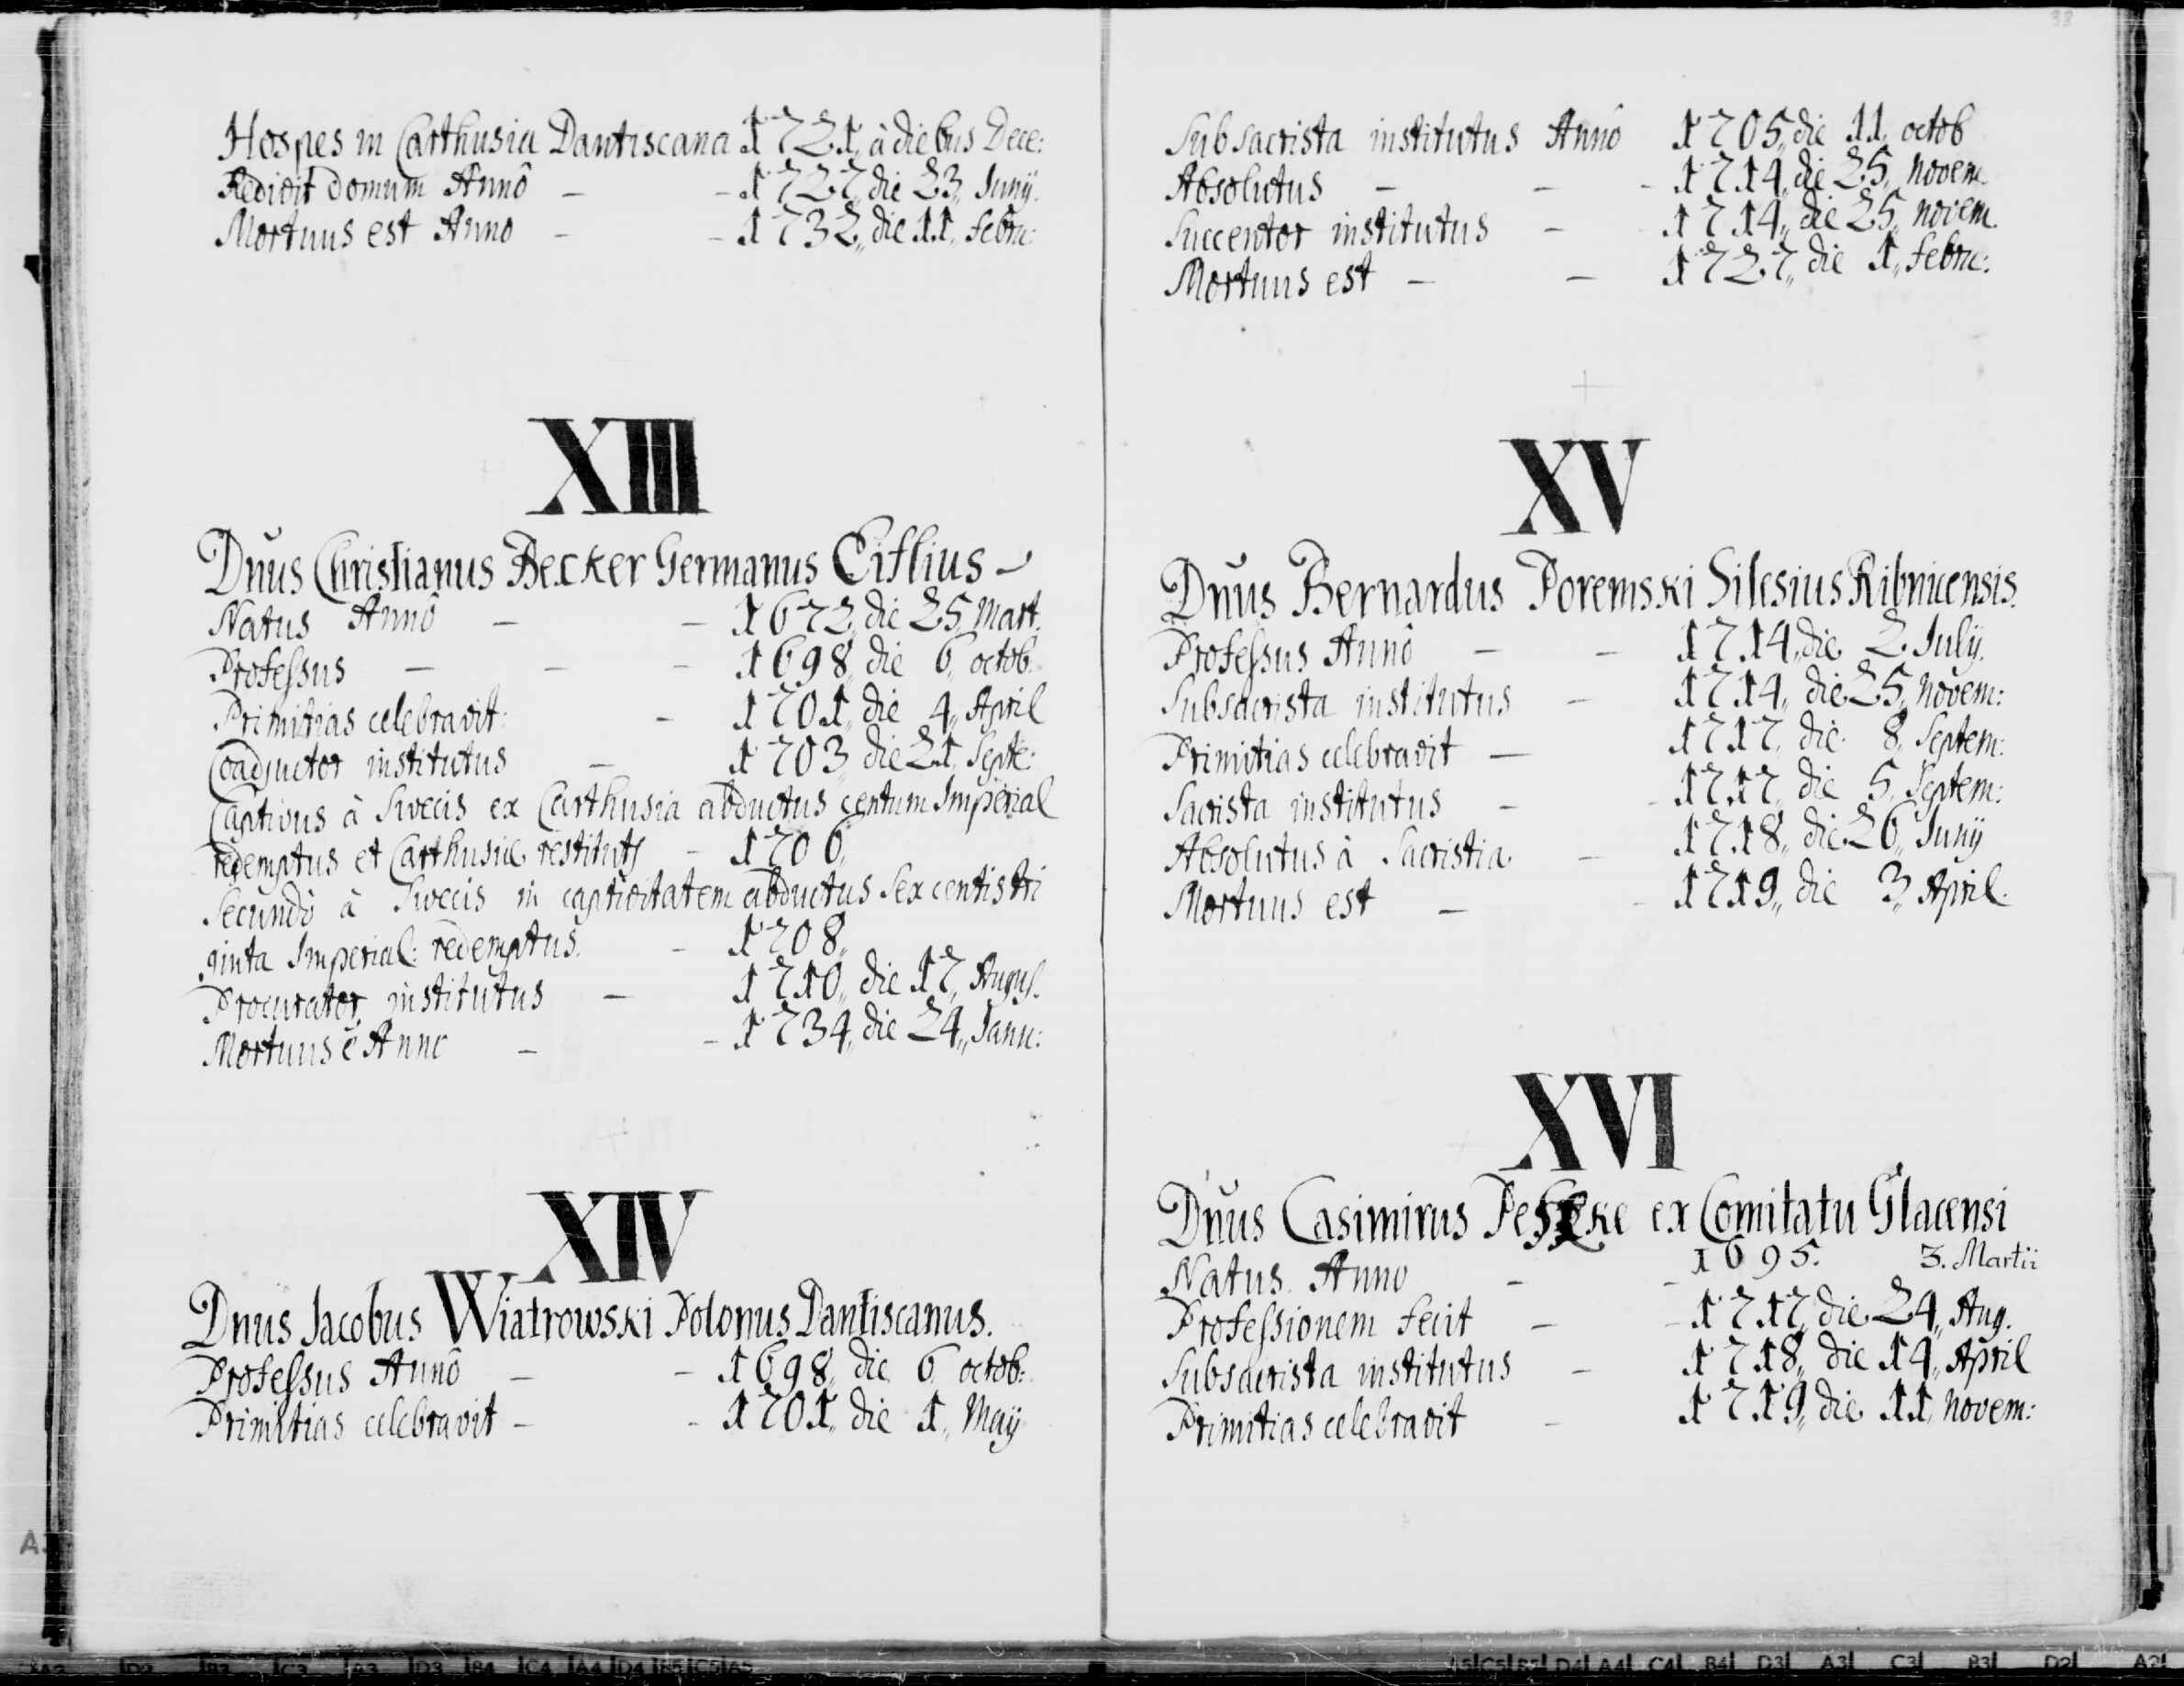 38
Hospes in Carthusia Dantiscana 1721, à diebus Dece:
Redivit domum Annô – – 1727, die 23, Junÿ.
Mortuus est Anno – – 1732,, die 11, Febru:
XIII
Dn̄us Christianus Becker Germanus
Natus Annô – – 1672, die 25, Mart.
Professus – – – 1698, die 6, octob.
Primitias celebravit: – 1701,, die 4,, April
Coadjutor institutus – 1703,, die 21, Septe:
Captivus à Svecis ex Carthusia abductus centum Imperial
redemptus et Carthusiæ restituts – 1706,
Secundò à Svecis in captivitatem abductus Sex centis tri
ginta Imperial: redemptus. – 1708,,
Procurator, institutus – 1710,, die 17,, Augus.
Mortuus ē Anno – – 1734,, die 24,, Janu:
XIV
Dnus Jacobus Wiatrowski Polonus Dantiscanus.
Professus Annô – – 1698,, die 6, octob:
Primitias celebravit – – 1701,, die 1,, Maÿ
Subsacrista institutus Annô 1705,, die 11, octob
Absolutus – – – 1714,, die 25, novem.
Succentor institutus – 1714,, die 25,, novem.
Mortuus est – – 1727,, die 1,, Febru:
XV
Dn̄us Bernardus Poremski Silesius Ribnicensis.
Professus Annô – – 1714,, die 2, Julÿ.
Subsacrista institutus – 1714,, die 25, novem:
Primitias celebravit – 1717, die 8, Septem:
Sacrista institutus – – 1717, die 5, Septem:
Absolutus à Sacristia. – 1718,, die 26,, Junÿ
Mortuus est – – 1719,, die 3,, April.
XVI
Dn̄us Casimirus ex Comitatu Glacensi
Natus Anno – – 1695. 3. Martii
Professionem fecit – – 1717, die 24,, Aug.
Subsacrista institutus – 1718,, die 14,, April
Primitias celebravit – 1719,, die 11, novem: